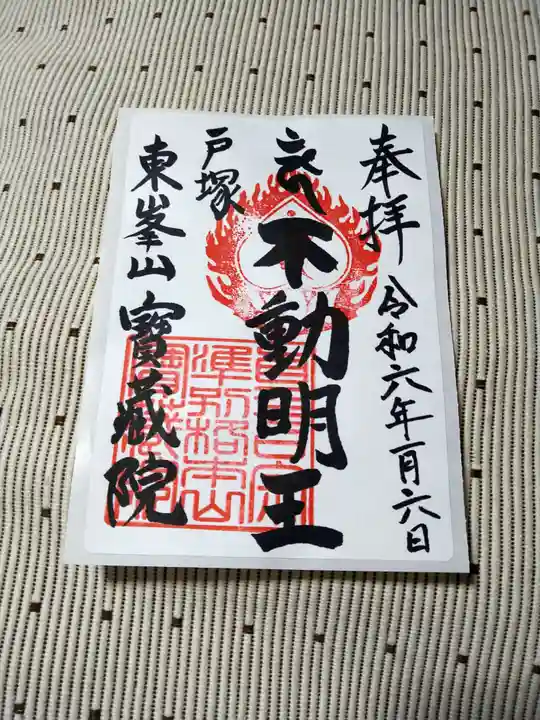 奉拝 令和六年一月六日
不動明王
戸塚
東峯山 寶蔵院